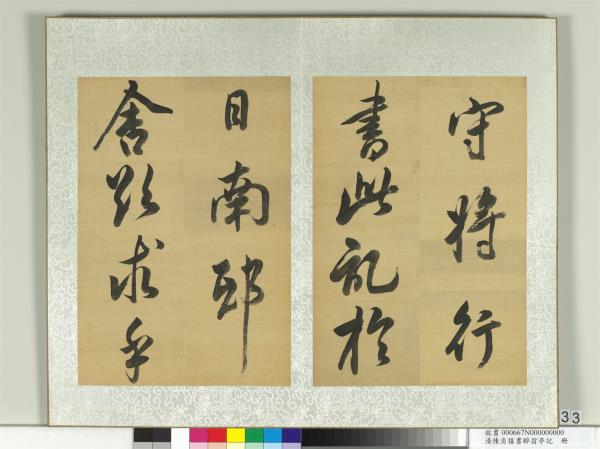 守將行
書此乱於
目南邸
舍求乎
33
故書 000667N000000000
清陳奕禧書醉翁亭記 冊